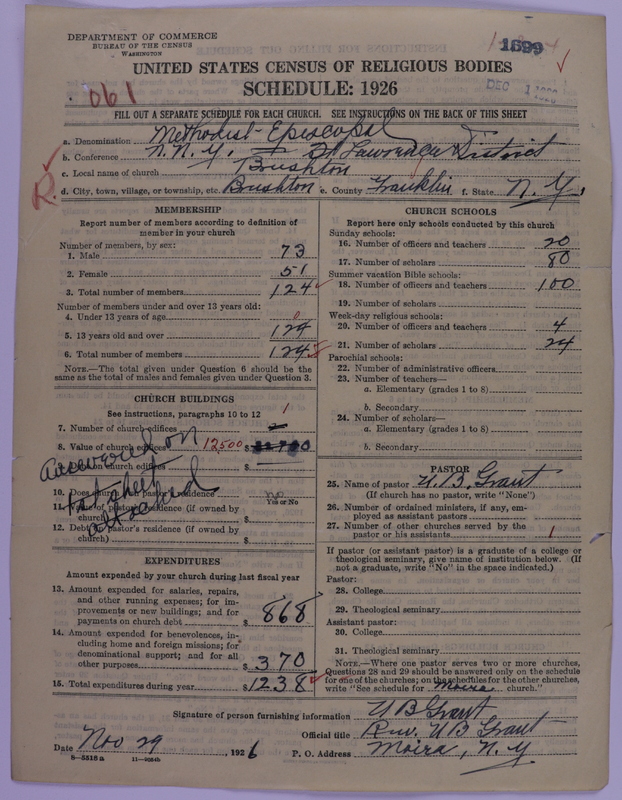 DEPARTMENT OF COMMERCE
BUREAU OF THE CENSUS
WASHINGTON
1599
UNITED STATES CENSUS OF RELIGIOUS BODIES
SCHEDULE: 1926
DEC 1
061
FILL OUT A SEPARATE SCHEDULE FOR EACH CHURCH. SEE INSTRUCTIONS ON THE BACK OF THIS SHEET
a. Denomination Methodist-Episcopal
b. Conference N.N.Y. St Lawrence District
c. Local name of church Brushton
R. d. City, town, village, or township, etc. Brushton e. County Franklin f. State N.Y.
MEMBERSHIP
Report number of members according to definition of
member in your church
Number of members, by sex:
1. Male 73
2. Female 51
3. Total number of members 124
Number of members under and over 13 years old:
4. Under 13 years of age 0
5. 13 years old and over 124
6. Total number of members 124
NOTE.—The total given under Question 6 should be the
same as the total of males and females given under Question 3.
CHURCH BUILDINGS
See instructions, paragraphs 10 to 12
7. Number of church edifices 1
8. Value of church edifices 12500 $
Answered on
1st sheet
attached
9. Debt on church edifices $
10. Does church own pastor's residence no
Yes or No
11. Value of pastor's residence (if owned by
church) $
12. Debt on pastor's residence (if owned by
church) $
EXPENDITURES
Amount expended by your church during last fiscal year
13. Amount expended for salaries, repairs,
and other running expenses; for im-
provements or new buildings; and for
payments on church debt $ 868
14. Amount expended for benevolences, in-
cluding home and foreign missions; for
denominational support; and for all
other purposes $ 370
15. Total expenditures during year $ 1238
CHURCH SCHOOLS
Report here only schools conducted by this church
Sunday schools:
16. Number of officers and teachers 20
17. Number of scholars 80
Summer vacation Bible schools:
18. Number of officers and teachers 100
19. Number of scholars
Week-day religious schools:
20. Number of officers and teachers 4
21. Number of scholars 24
Parochial schools:
22. Number of administrative officers
23. Number of teachers—
a. Elementary (grades 1 to 8)
b. Secondary
24. Number of scholars—
a. Elementary (grades 1 to 8)
b. Secondary
PASTOR
25. Name of pastor U.B. Grant
(If church has no pastor, write "None")
26. Number of ordained ministers, if any, em-
ployed as assistant pastors
27. Number of other churches served by the
pastor or his assistants 1
If pastor (or assistant pastor) is a graduate of a college or
theological seminary, give name of institution below. (If
not a graduate, write "No" in the space indicated.)
Pastor:
28. College
29. Theological seminary
Assistant pastor:
30. College
31. Theological seminary
NOTE.—Where one pastor serves two or more churches,
Questions 28 and 29 should be answered only on the schedule
for one of the churches; on the schedules for the other churches,
write "See schedule for Moira church."
Signature of person furnishing information U B Grant
Official title Rev. U B Grant
Date Nov 29, 1926 P. O. Address Moira, N.Y.
8-5516a 11-9284b